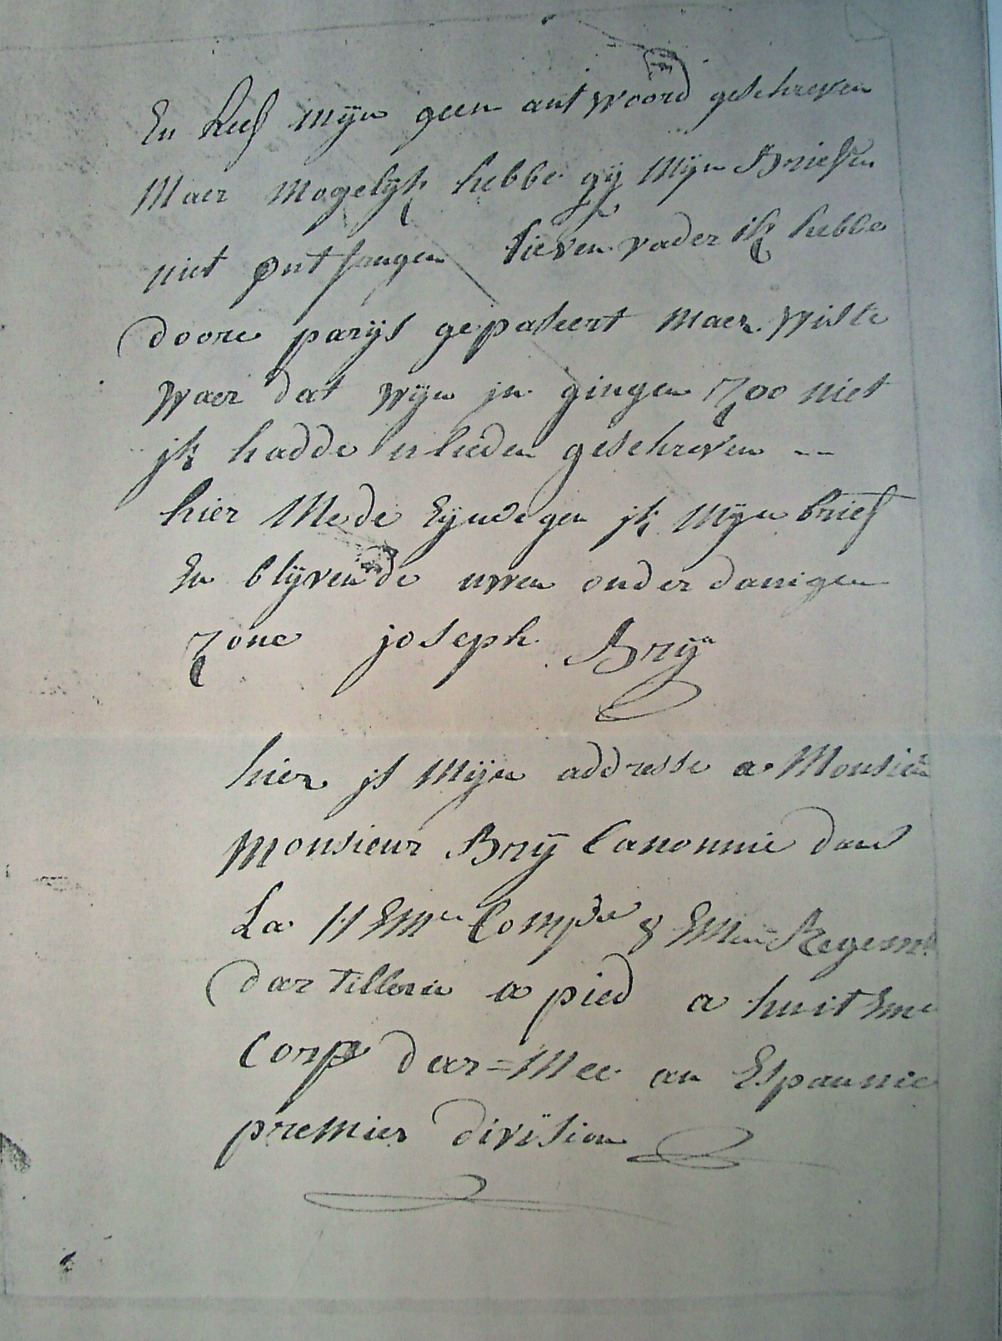 En heef mijn geen antwoord geschreven
Maer mogelijk hebbe gij Mijn Briefen
niet ontfangen lieven vader ik hebbe
doore parijs gepaseert maer wiste
waer dat wijn jn gingen zoo niet
jk hadde ulieden geschreven --
hier Mede Eijndegen jk Mijn brief
En blijvende uwen onderdanigen
zone joseph Brij
hier js Mijn addresse a Monsieu
Monsieur Brij Canonnie dans
La 11 Eme Compnie 8 Eme Regemt
dar tillerie a pied a huit Eme
Corps dar=Mee an Espannie
premier division